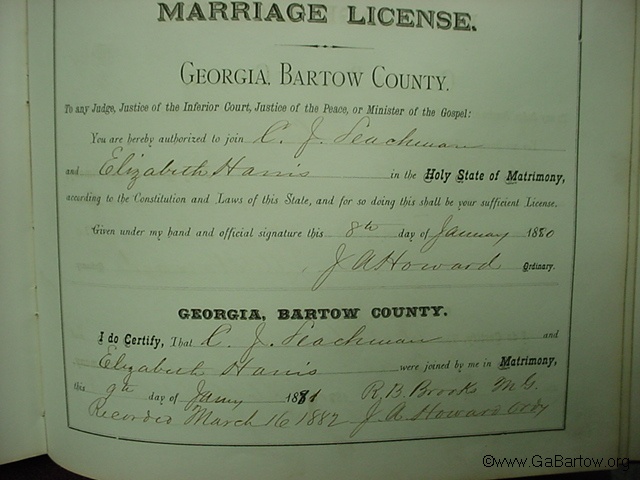 MARRIAGE LICENSE.
GEORGIA, BARTOW COUNTY.
To any Judge, Justice of the Inferior Court, Justice of the Peace, or Minister of the Gospel:
You are hereby authorized to join C. J. Leachman
and Elizabeth Harris in the Holy State of Matrimony,
according to the Constitution and Laws of this State, and for so doing this shall be your sufficient License.
Given under my hand and official signature this 8th day of January 1880
J A Howard Ordinary.
GEORGIA, BARTOW COUNTY.
I do Certify, That C. J. Leachman and
Elizabeth Harris were joined by me in Matrimony,
this 9th day of Jany 1881 R. B. Brooks M G.
Recorded March 16 1882 J. A. Howard Ordy
©www.GaBartow.org